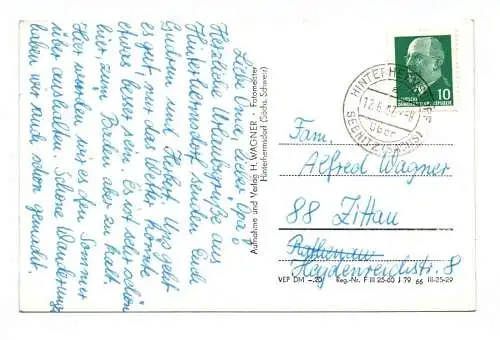 Liebe Oma, lieber Opa!
Herzliche Urlaubsgrüße aus
Hinterhermsdorf senden Euch
Gudrun und Hubert. Uns geht
es gut, nur das Wetter könnte
etwas besser sein. Es ist sehr schön
zum Baden, aber zu kalt.
Hier würden wir es den Sommer
über aushalten. Schöne Wanderungen
haben wir auch schon gemacht.
Aufnahme und Verlag H. WAGNER - Fotomeister
Hinterhermsdorf (Sächs. Schweiz)
HINTERHERMSDORF
über
SEBNITZ (SACHS)
10
DEUTSCHE
DEMOKRATISCHE REPUBLIK
Fam.
Alfred Wagner
88 Zittau
Heydenreichstr. 8
VEP DM -,20 Reg.-Nr. F III 25-60 J 79 66 III-25-29